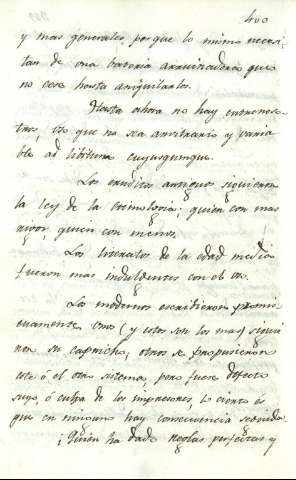 400
y mas generales, por que lo mismo necesi-
tan de una bateria arruinadora que
no cese hasta aniquilarlos.
Hasta ahora no hay entre noso-
tros, uso que no sea arvitrario y varia-
ble ad libitum cuyusqunque.
Los eruditos antiguos siguieron
la ley de la etimología; quien con mas
rigor, quien con menos.
Los literatos de la edad media
fueron mas indulgentes con el uso.
Los modernos escribieron promis-
cuamente. Unos (y estos son los mas) sigui-
eron su capricho; otros se propusieron
este ó el otro sistema, pero fuese defecto
suyo, ó culpa de los impresores, lo cierto es
que en ninguno hay consecuencia seguida.
¿Quién ha dado reglas perfectas y